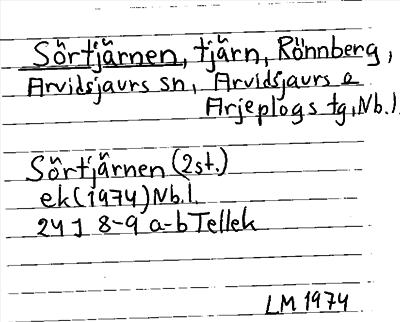 Sörtjärnen, tjärn, Rönnberg,
Arvidsjaurs sn, Arvidsjaurs o
Arjeplogs tg, Nb.l
Sörtjärnen (2st.)
ek(1974)Nb.l.
24 J 8-9 a-b Tellek
LM 1974